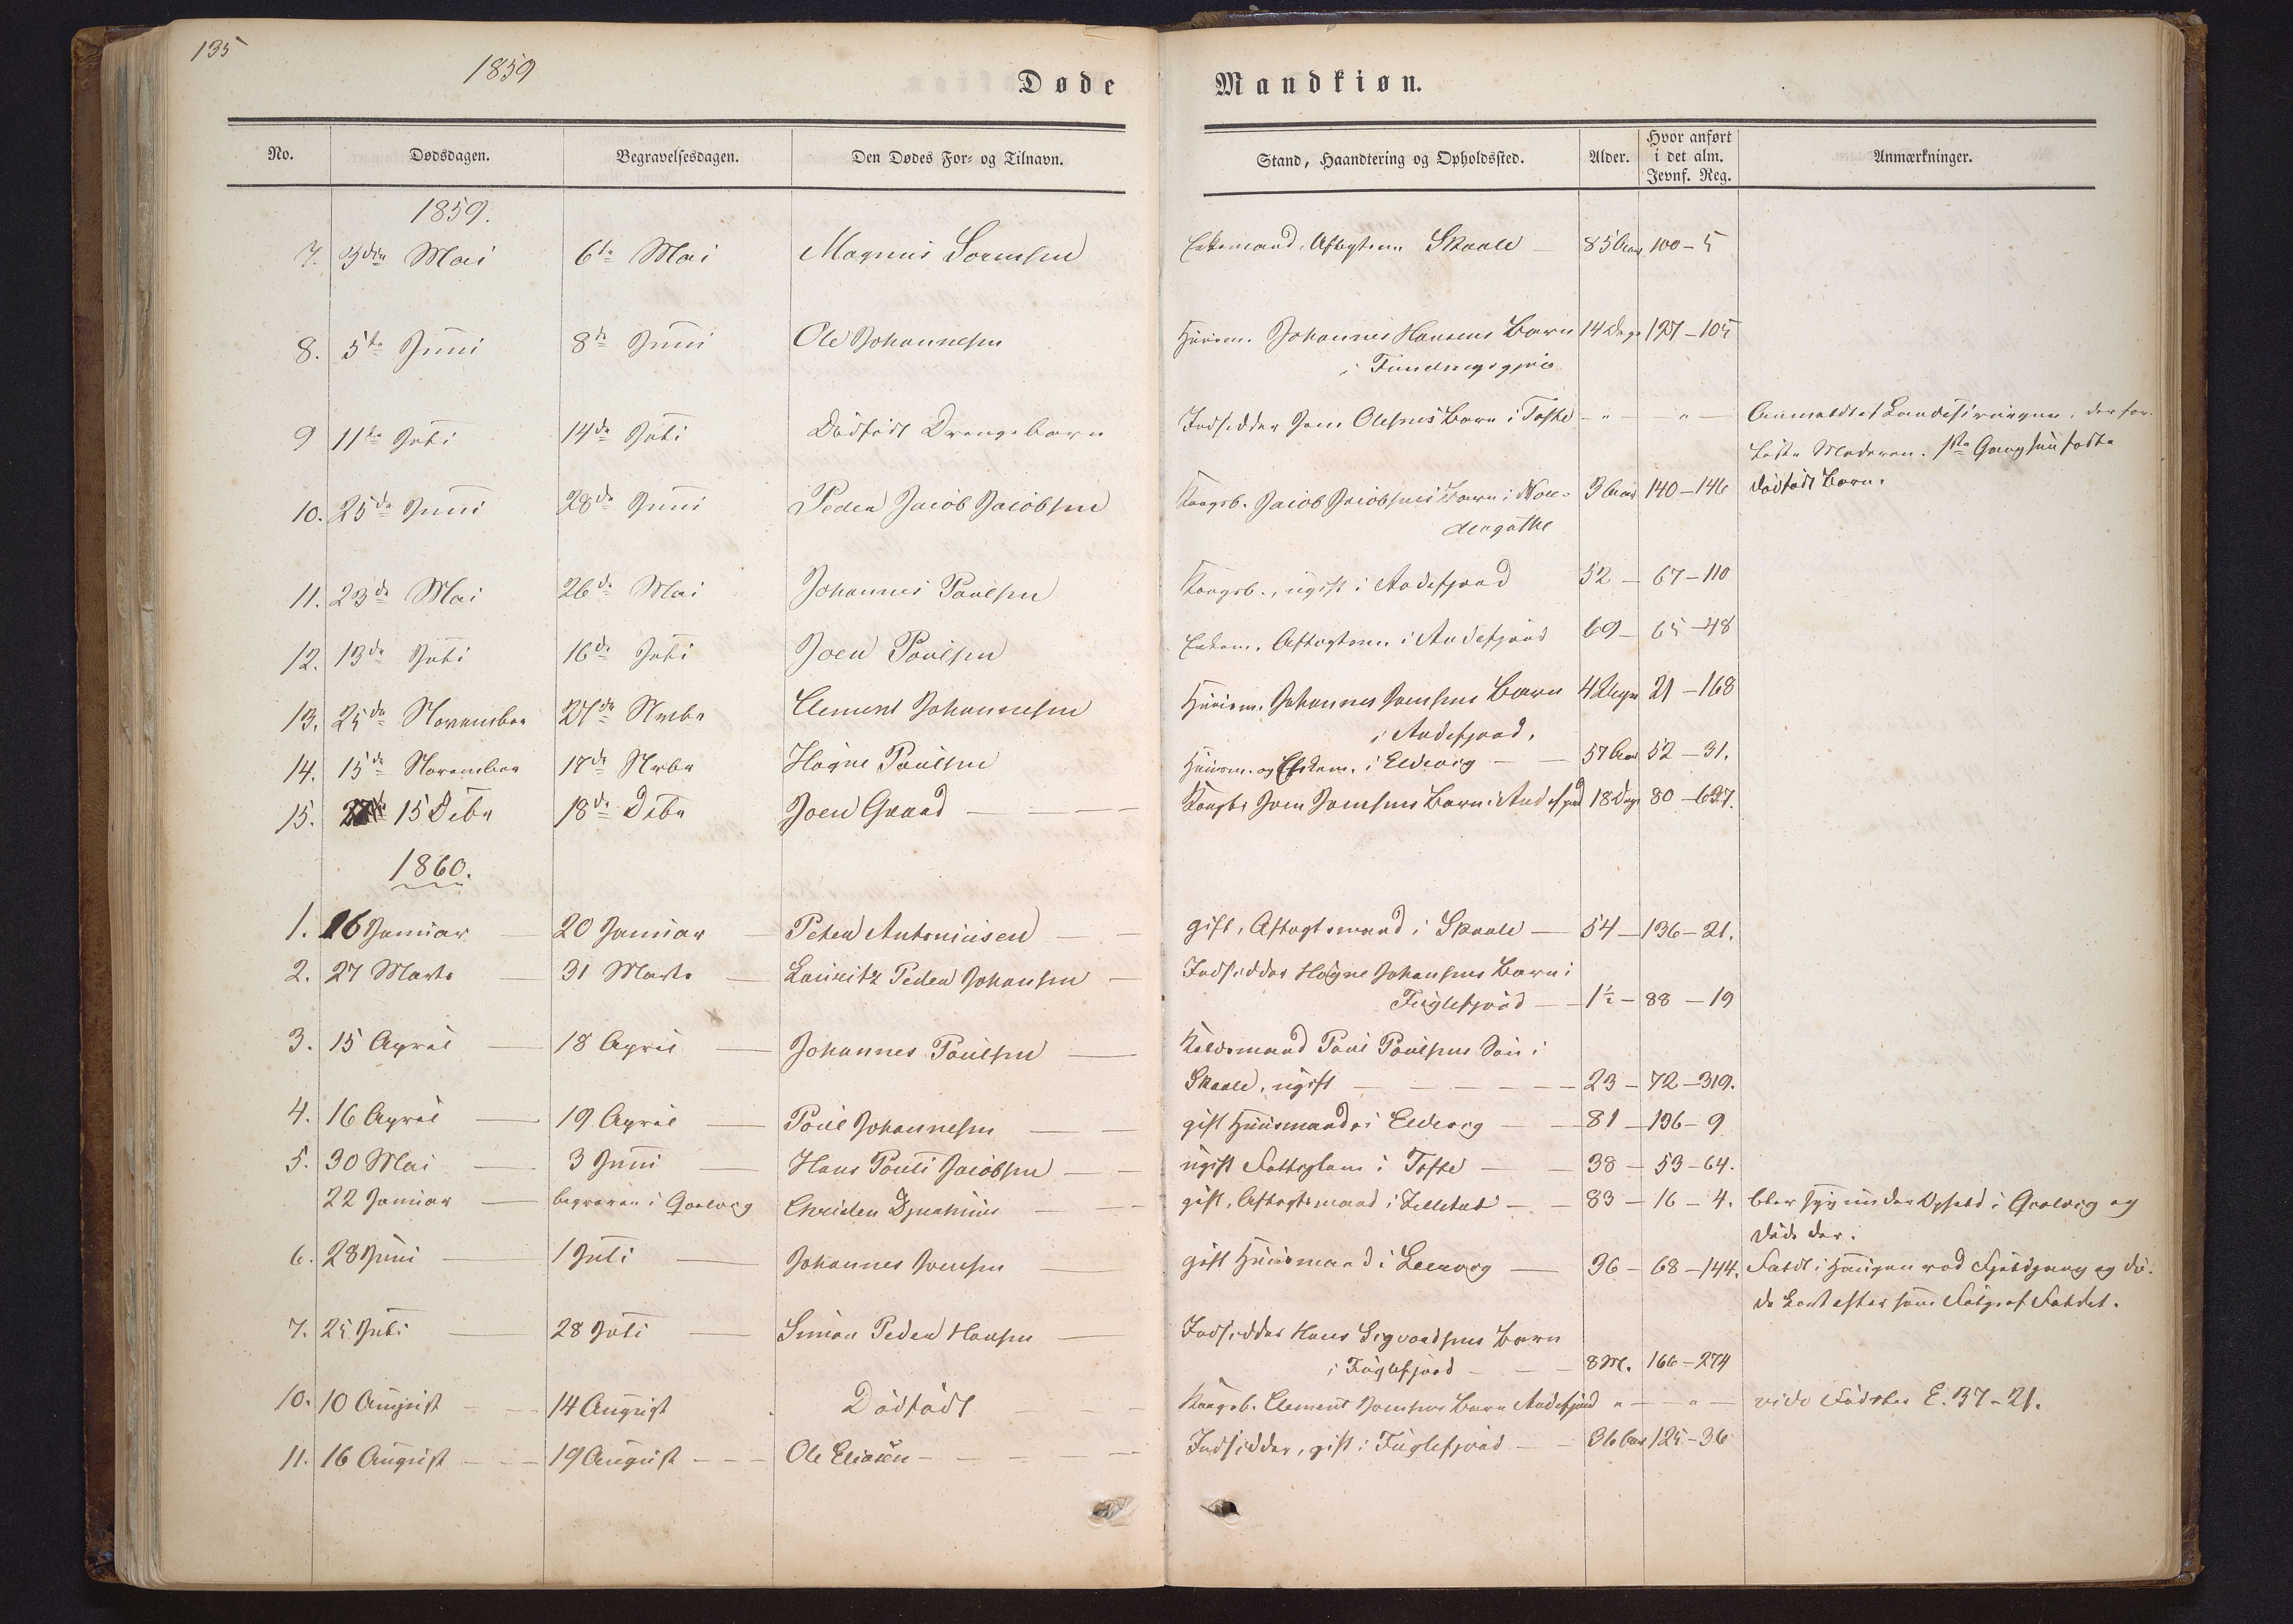 135
1859
Døde Mandkiøn.
No. Dødsdagen. Begravelsesdagen. Den Dødes For- og Tilnavn. Stand, Haandtering og Opholdssted. Alder. Hvor anført i det alm. Jevnf. Reg. Anmærkninger.
1859.
7. 3die Mai 6te Mai Magnus Joensen Enkemand, Aftægtsm. Skaale 85 Aar 100-5
8. 5te Juni 8de Juni Ole Johannesen Huusm. Johannes Hansens Barn 14 Dage 127-105
i Funningsgjov
9 11te Juli 14de Juli Dødfødt Drengebarn Indsidder Joen Olesens Barn i Tofte - " - " - Anmeldt af Landchirurgen, der for-
løste Moderen. 1ste Gang hun fødte
10. 25de Juni 28de Juni Peder Jacob Jacobsen Kongsb. Jacob Jacobsens Barn i Nor- 3 Aar 140-146 dødfødt Barn.
dergøthe
11. 23de Mai 26de Mai Johannes Poulsen Kongsb., ugift i Andefjord 52 - 67-110
12. 13de Juli 16de Juli Joen Poulsen Enkem. Aftægtsm. i Andefjord 69 - 65-48
13. 25de November 27de Nvbr Clement Johannesen Huusm. Johannes Joensens Barn 4 Dage 21-168
i Andefjord.
14. 15de November 17de Nvbr Høgne Poulsen Huusm. og Enkem. i Eldevig - 57 Aar 52-31.
15. 15 Debr 18de Debr Joen Graad Kongsb. Joen Joensens Barn i Andefjord 18 Dage 80-627.
1860.
1. 16 Januar 20 Januar Peter Antoniusen gift, Aftægtsmand i Skaale - 54 - 136-21.
2. 27 Marts 31 Marts Lauritz Peder Johansen Indsidder Høgne Johansens Barn i
Fuglefjord - 1½ - 88-19
3. 15 April 18 April Johannes Poulsen Poul Poulsens Søn i
Skaale, ugift - 23 - 72-319.
4. 16 April 19 April Poul Johannesen gift Huusmand i Eldevig - 81 - 136-9
5. 30 Mai 3 Juni Hans Pouli Jacobsen ugift Fattiglem i Tofte - 38 - 53-64.
22 Januar begraven i Qvalvig Christen Djonhuus gift, Aftægtsmand i Selletrad - 83 - 16-4. blev syg under Ophold i Qvalvig og
døde der.
6. 28 Juni 1 Juli Johannes Joensen gift Huusmand i Leervig - 36 - 68-144. Faldt i Haugen ved Fjeldgang og dø-
de kort efter som Følge af Faldet.
7. 25 Juli 28 Juli Simon Peder Hansen Indsidder Hans Sigvardsens Barn
i Fuglefjord - 8 M. 166-274
10. 10 August 14 August Dødfødt Kongsb. Clement Joensens Barn Andefjord " - " - vide Fødsler E. 37-21.
11. 16 August 19 August Ole Eliasen Indsidder, gift i Fuglefjord - 36 Aar 125-36